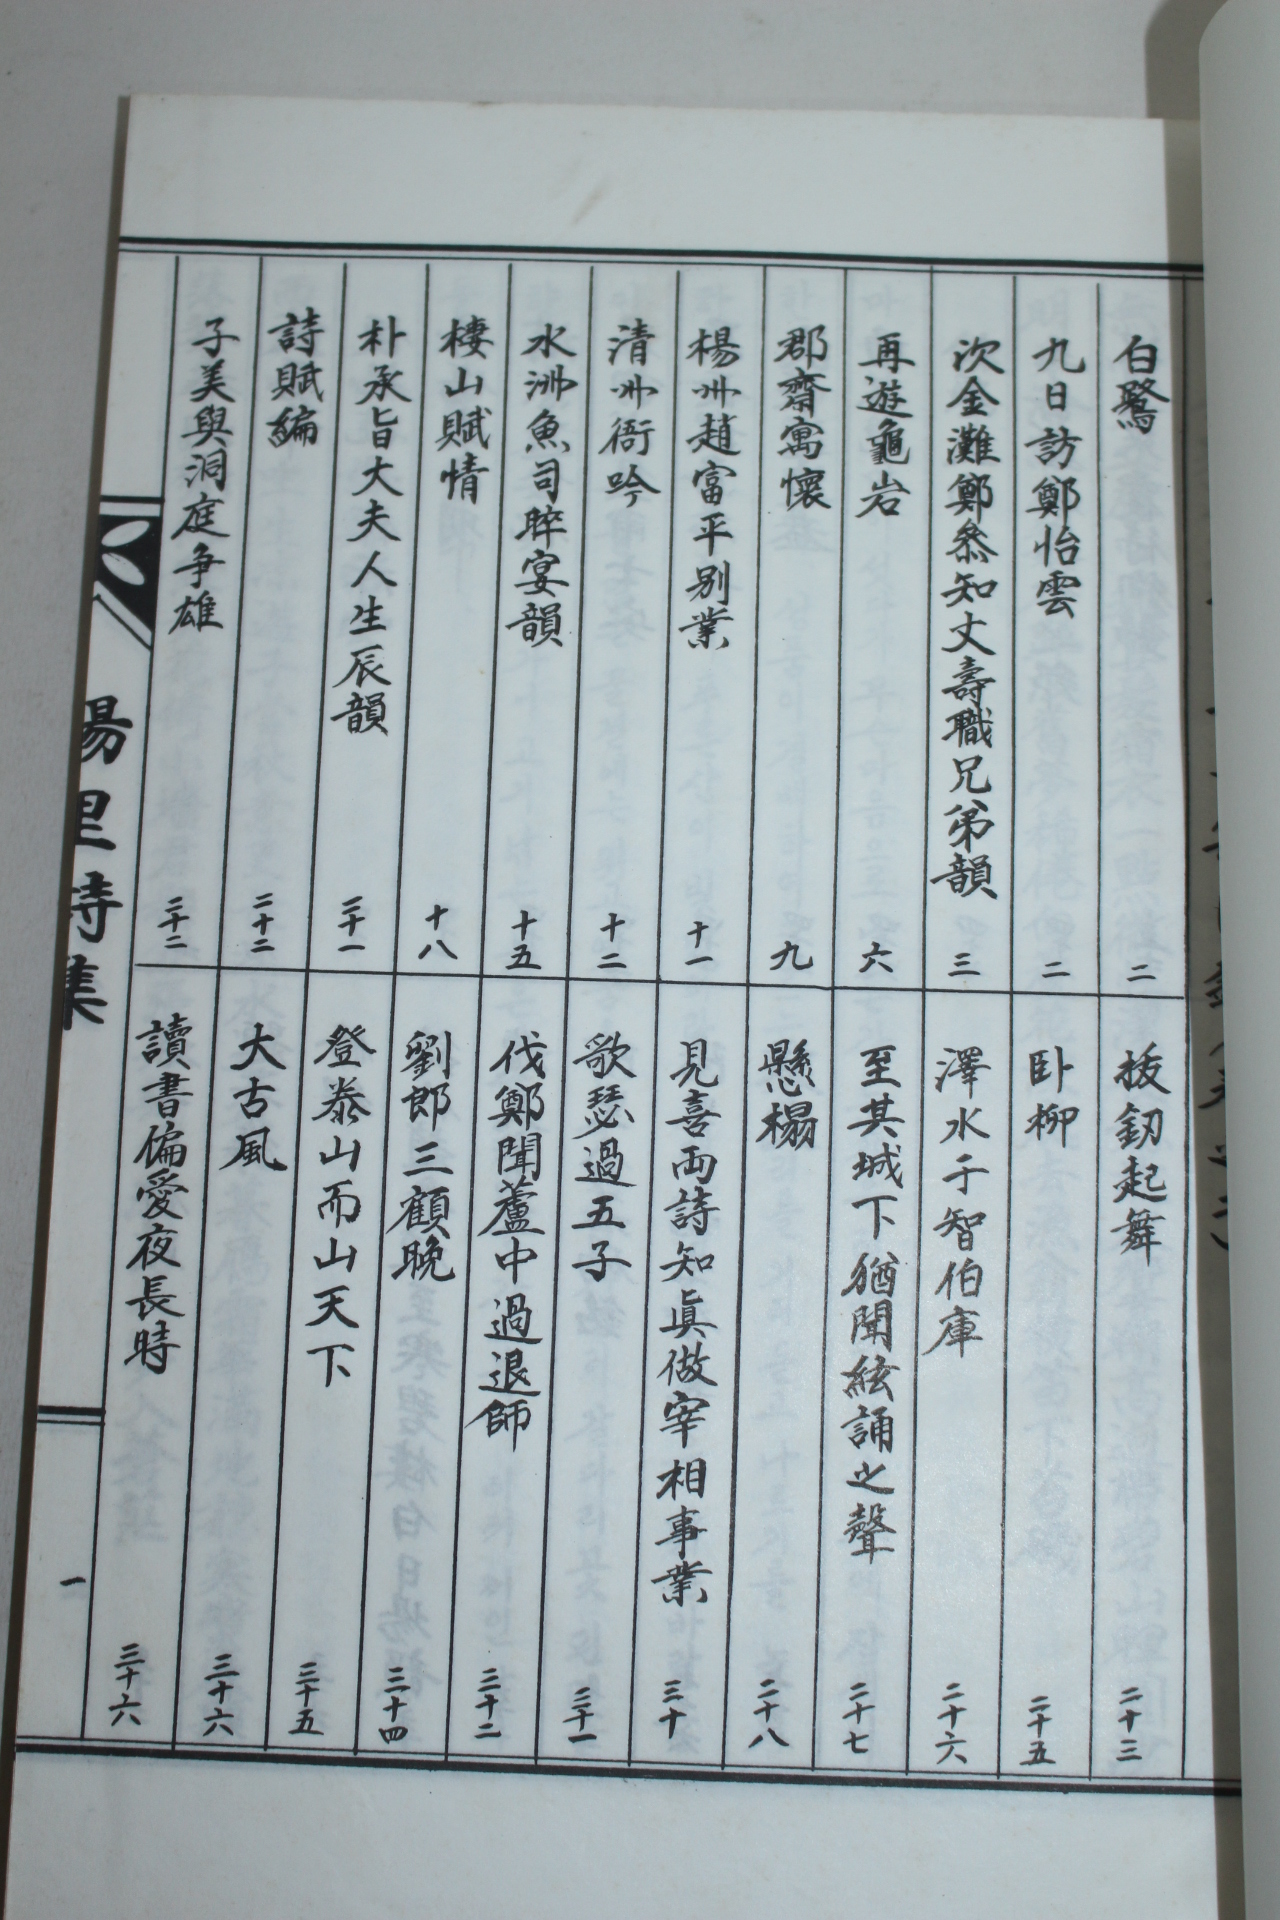 白鷺 二
九日訪鄭怡雲 二
次金灘鄭叅知丈壽職兄弟韻 三
再遊龜岩 六
郡齋寓懷 九
楊州趙富平別業 十一
清州衙吟 十二
水洲魚司晬宴韻 十五
棲山賦情 十八
朴承旨大夫人生辰韻 二十一
詩賦編 二十二
子美與洞庭爭雄 二十二
拔釰起舞 二十三
卧柳 二十五
澤水于智伯庫 二十六
至其城下猶聞絃誦之聲 二十七
懸榻 二十八
見喜雨詩知眞做宰相事業 三十
歌瑟過五子 三十一
伐鄭聞蘆中過退師 三十二
劉郎三顧晩 三十四
登泰山而山天下 三十五
大古風 三十六
讀書偏愛夜長時 三十六
陽里詩集
一